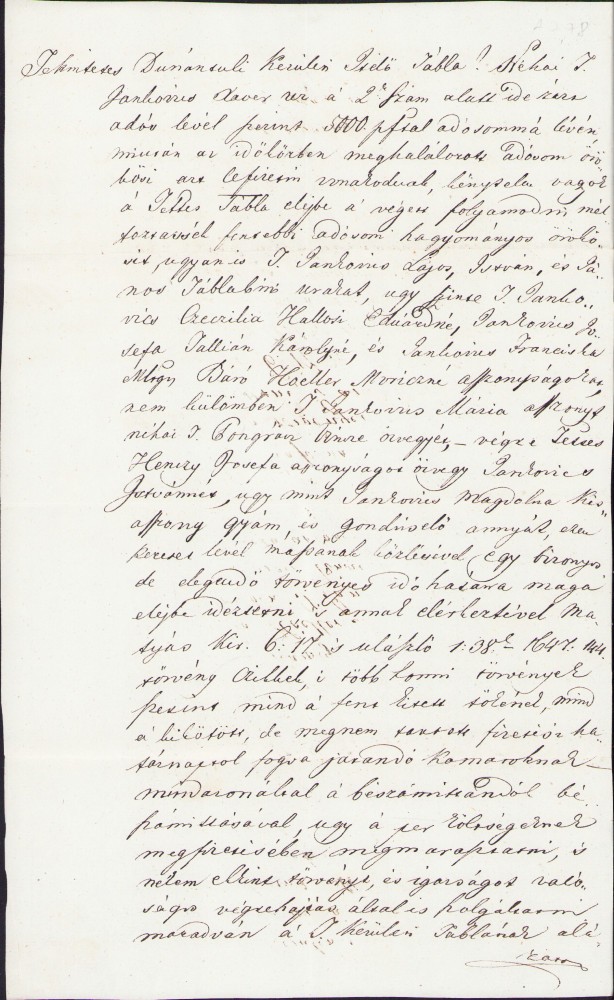 Tekintetes Dunántuli Kerületi Itélő Tábla! Néhai T.
Jankovics Xaver ur á 2k Szám alatt ide zárt
adós levél szerint 5000 pfttal adósommá lévén,
miután az időközben meghalálozott adósom örö-
kösei azt lefizetni vonakodnak, kénytelen vagyok
á Tettes Tábla elejbe á végett folyamodni, mél-
toztassék fentebbi adósom hagyományos örökö-
seit, ugyanis T. Jankovics Lajos, István, és Já-
nos Táblabiró urakat, ugy szinte T. Janko-
vics Czeczilia Hallosi Eduárdné, Jankovics Jo-
sefa Tallián Károlyné, és Jankovics Francziska
Mlgy Báró Hoeller Moriczné asszonyságokat,
nem külömben T. Jankovics Mária asszonyt
néhai T. Pongrácz özvegyét, – végre Tettes
Henczy Josefa asszonyságot özvegy Jankovics
Istvánnét, ugy mint Jankovics Magdolna kis-
asszony gyám, és gondviselő annyát, ezen
kereset levél mássának közlésével egy bizonyos
de elegendő törvényes idő határra maga
elejbe idéztetni 's annak elérkeztével Má-
tyás Kir. 6: 17. és ulászló 1: 38k 1647: 144
törvény Czikkek, 's több honni törvények
szerint mind á fent kitett tőkének, mind
á kikötött, de megnem tartott fizetési ha-
tárnaptol fogva járandó kamatoknak –
mindazonáltal á bészámittandók bé
számittásával, ugy á per költségeknek
megfizetésében megmarasztatni, 's
nékem elként törvényt, és igazságot való-
ságos végrehajtás által is szolgáltatni
maradván á T. Kerületi Táblának alá-
zatos